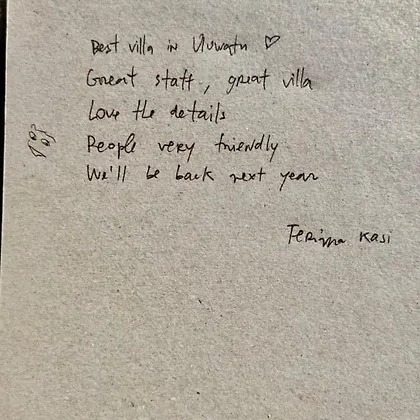 Best villa in Uluwatu ♡
Great staff, great villa
Love the details
People very friendly
We'll be back next year
Terima Kasi